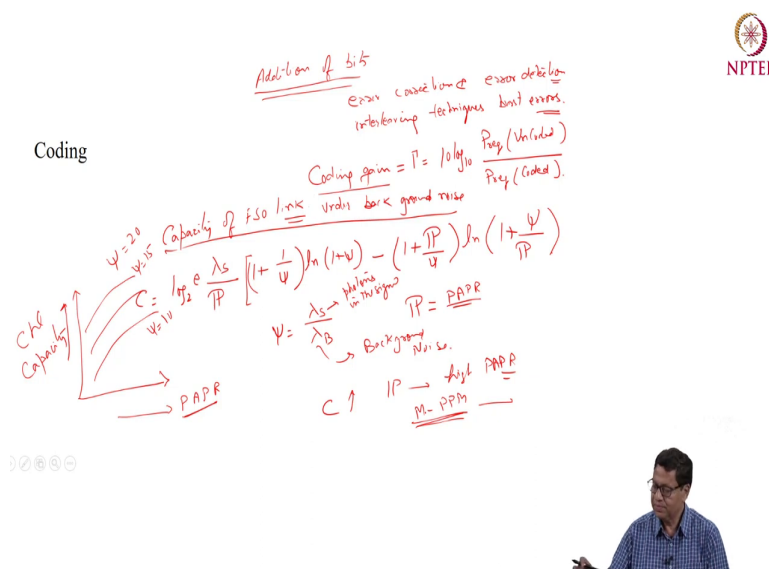 NPTEL
Addition of bits
error correction & error detection
interleaving techniques burst errors.
Coding
Coding gain = Γ = 10 log₁₀ Preq (Uncoded) / Preq (Coded).
Capacity of FSO link under back ground noise
Ψ = 20
Ψ = 15
Ψ = 10
C = log₂ e λs/ℙ [(1 + 1/Ψ) ln (1+Ψ) − (1 + ℙ/Ψ) ln (1 + Ψ/ℙ)
Ψ = λs/λB
photons in the signal
Background Noise.
ℙ = PAPR
Chl Capacity
PAPR
C ↑ ℙ → high PAPR
M-PPM